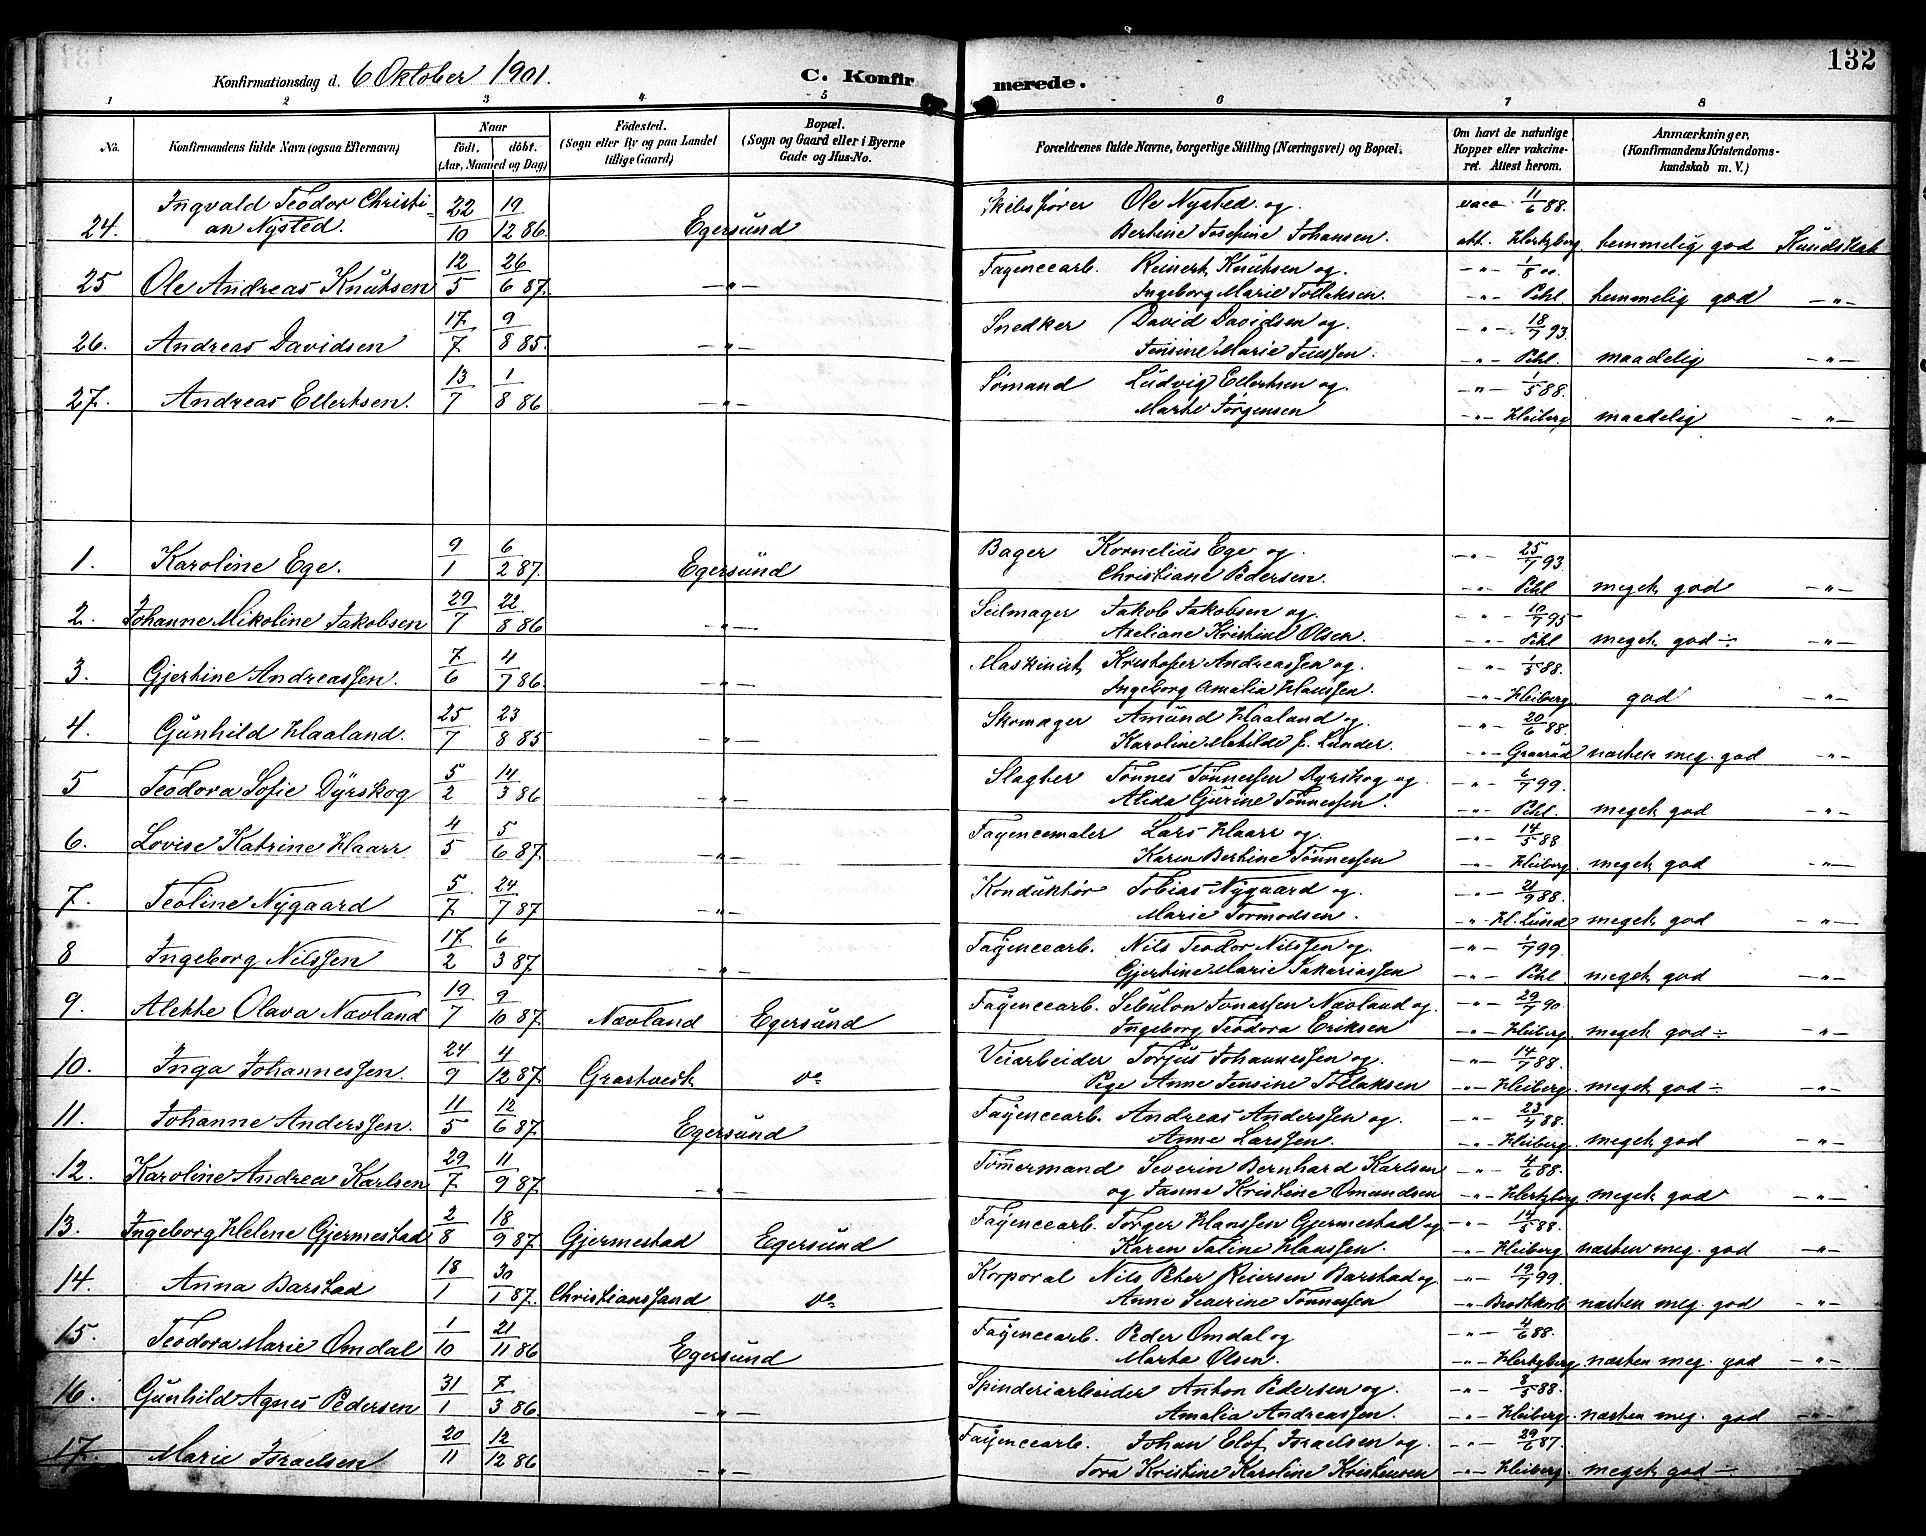 132
Konfirmationsdag d. 6 Oktober 1901.
C. Konfirmerede.
1 2 3 4 5 6 7 8
No.
Konfirmandens fulde Navn (ogsaa Efternavn)
Naar
födt. döbt.
(Aar, Maaned og Dag)
Födested.
(Sogn eller By og paa Landet
tillige Gaard)
Bopæl.
(Sogn og Gaard eller i Byerne
Gade og Hus-No.
Forældrenes fulde Navne, borgerlige Stilling (Næringsvei) og Bopæl.
Om havt de naturlige
Kopper eller vakcine-
ret. Attest herom.
Anmærkninger.
(Konfirmandens Kristendoms-
kundskab m. V.)
Ingvald Teodor Christi- 22 19 Skibsfører Ole Nysted og vacc 11/6 88.
24. an Nysted. 10 12 86. Egersund Berthine Josefine Johansen. att. Hertzberg. hemmelig god Kundskab
12 26 Fayencearb. Reinert Knutsen og -"- 1/8 00.
25 Ole Andreas Knutsen 5 6 87. -"- Ingeborg Marie Tollaksen. -"- Pehl. hemmelig god -"-
17 9 Snedker David Davidsen og -"- 18/7 93
26. Andreas Davidsen 7 8 85. -"- Jensine Marie Jussen. -"- Pehl. maadelig -"-
13 1 Sømand Ludvig Ellertsen og -"- 1/5 88.
27. Andreas Ellertsen. 7 8 86 -"- Marte Jørgensen -"- Heiberg maadelig -"-
9 6 Bager Kornelius Ege og -"- 25/7 93.
1. Karoline Ege. 1 2 87. Egersund Christiane Pedersen. -"- Pehl meget god -"-
29 22 Seilmager Jakob Jakobsen og -"- 10/7 95
2. Johanne Mikoline Jakobsen 7 8 86 -"- Axeliane Kristine Olsen. -"- Pehl meget god ÷ -"-
7 4 Maskinist Kristofer Andreassen og -"- 1/5 88.
3. Gjertine Andreassen. 6 7 86. -"- Ingeborg Amalia Hanssen. -"- Heiberg. god -"-
25 23 Skomager Amund Haaland og -"- 20/6 88.
4. Gunhild Haaland. 7 8 85 -"- Karoline Matilde f. Lunder. -"- Graarud næsten meg. god -"-
5 14 Slagter Tønnes Tønnessen Dyrskog og -"- 99.
5 Teodora Sofie Dyrskog 2 3 86 -"- Alida Gurine Tønnessen. -"- Pehl. meget god -"-
4 5 Fayencemaler Lars Haarr og -"- 14/5 88
6. Lovise Katrine Haarr 5 6 87. -"- Karen Bertine Tønnessen -"- Heiberg. meget god -"-
5 24 Konduktør Tobias Nygaard og -"- 21/9 88.
7. Teoline Nygaard 7 7 87 -"- Marie Tormodsen. -"- H. Lund meget god -"-
17 6 Fayencearb. Nils Teodor Nilssen og -"- 1/7 99.
8 Ingeborg Nilssen 2 3 87. -"- Gjertine Marie Sakariassen -"- Pehl. meget god -"-
19 9 Fayencearb. Sebulon Jonassen Nævland og -"- 29/7 90.
9. Alette Olava Nævland 7 10 87. Nævland Egersund Ingeborg Teodora Eriksen -"- Heiberg. meget god ÷ -"-
24 4 Veiarbeider Torjus Johannessen og -"- 14/7 88.
10. Inga Johannessen. 9 12 87. Grastveit do Pige Anne Jensine Tollaksen -"- Heiberg. meget god ÷ -"-
11 12 Fayencearb. Andreas Anderssen og -"- 23/7 88.
11. Johanne Anderssen. 5 6 87. Egersund Anne Larssen. -"- Heiberg. meget god -"-
29 11 Tømmermand Severin Bernhard Karlsen -"- 4/6 88.
12. Karoline Andrea Karlsen 7 9 87. -"- og Janne Kristine Omundsen -"- Hertzberg. meget god -"-
2 18 Fayencearb. Torger Hanssen Gjermestad og -"- 14/5 88.
13. Ingeborg Helene Gjermestad 8 9 87. Gjermestad Egersund Karen Taline Hanssen. -"- Heiberg. næsten meg. god -"-
18 30 Korporal Nils Peter Reiersen Barstad og -"- 19/7 99.
14. Anna Barstad 1 1 87. Christianssand do Anne Severine Tønnessen -"- Brodtkorb. næsten meg. god -"-
1 21 Fayencearb. Peder Omdal og -"- 4/6 88.
15. Teodora Marie Omdal 10 11 86 Egersund Marta Olsen. -"- Hertzberg. næsten meg. god -"-
31 7 Spinderiarbeider Anton Pedersen og -"- 8/5 88.
16. Gunhild Agnes Pedersen 1 3 86. -"- Amalia Andreassen. -"- Heiberg. næsten meg. god -"-
20 12 Fayencearb. Johan Elof Israelsen og -"- 29/6 87.
17. Marie Israelsen 11 12 86 -"- Tora Kristine Karoline Kristensen -"- Heiberg. meget god ÷